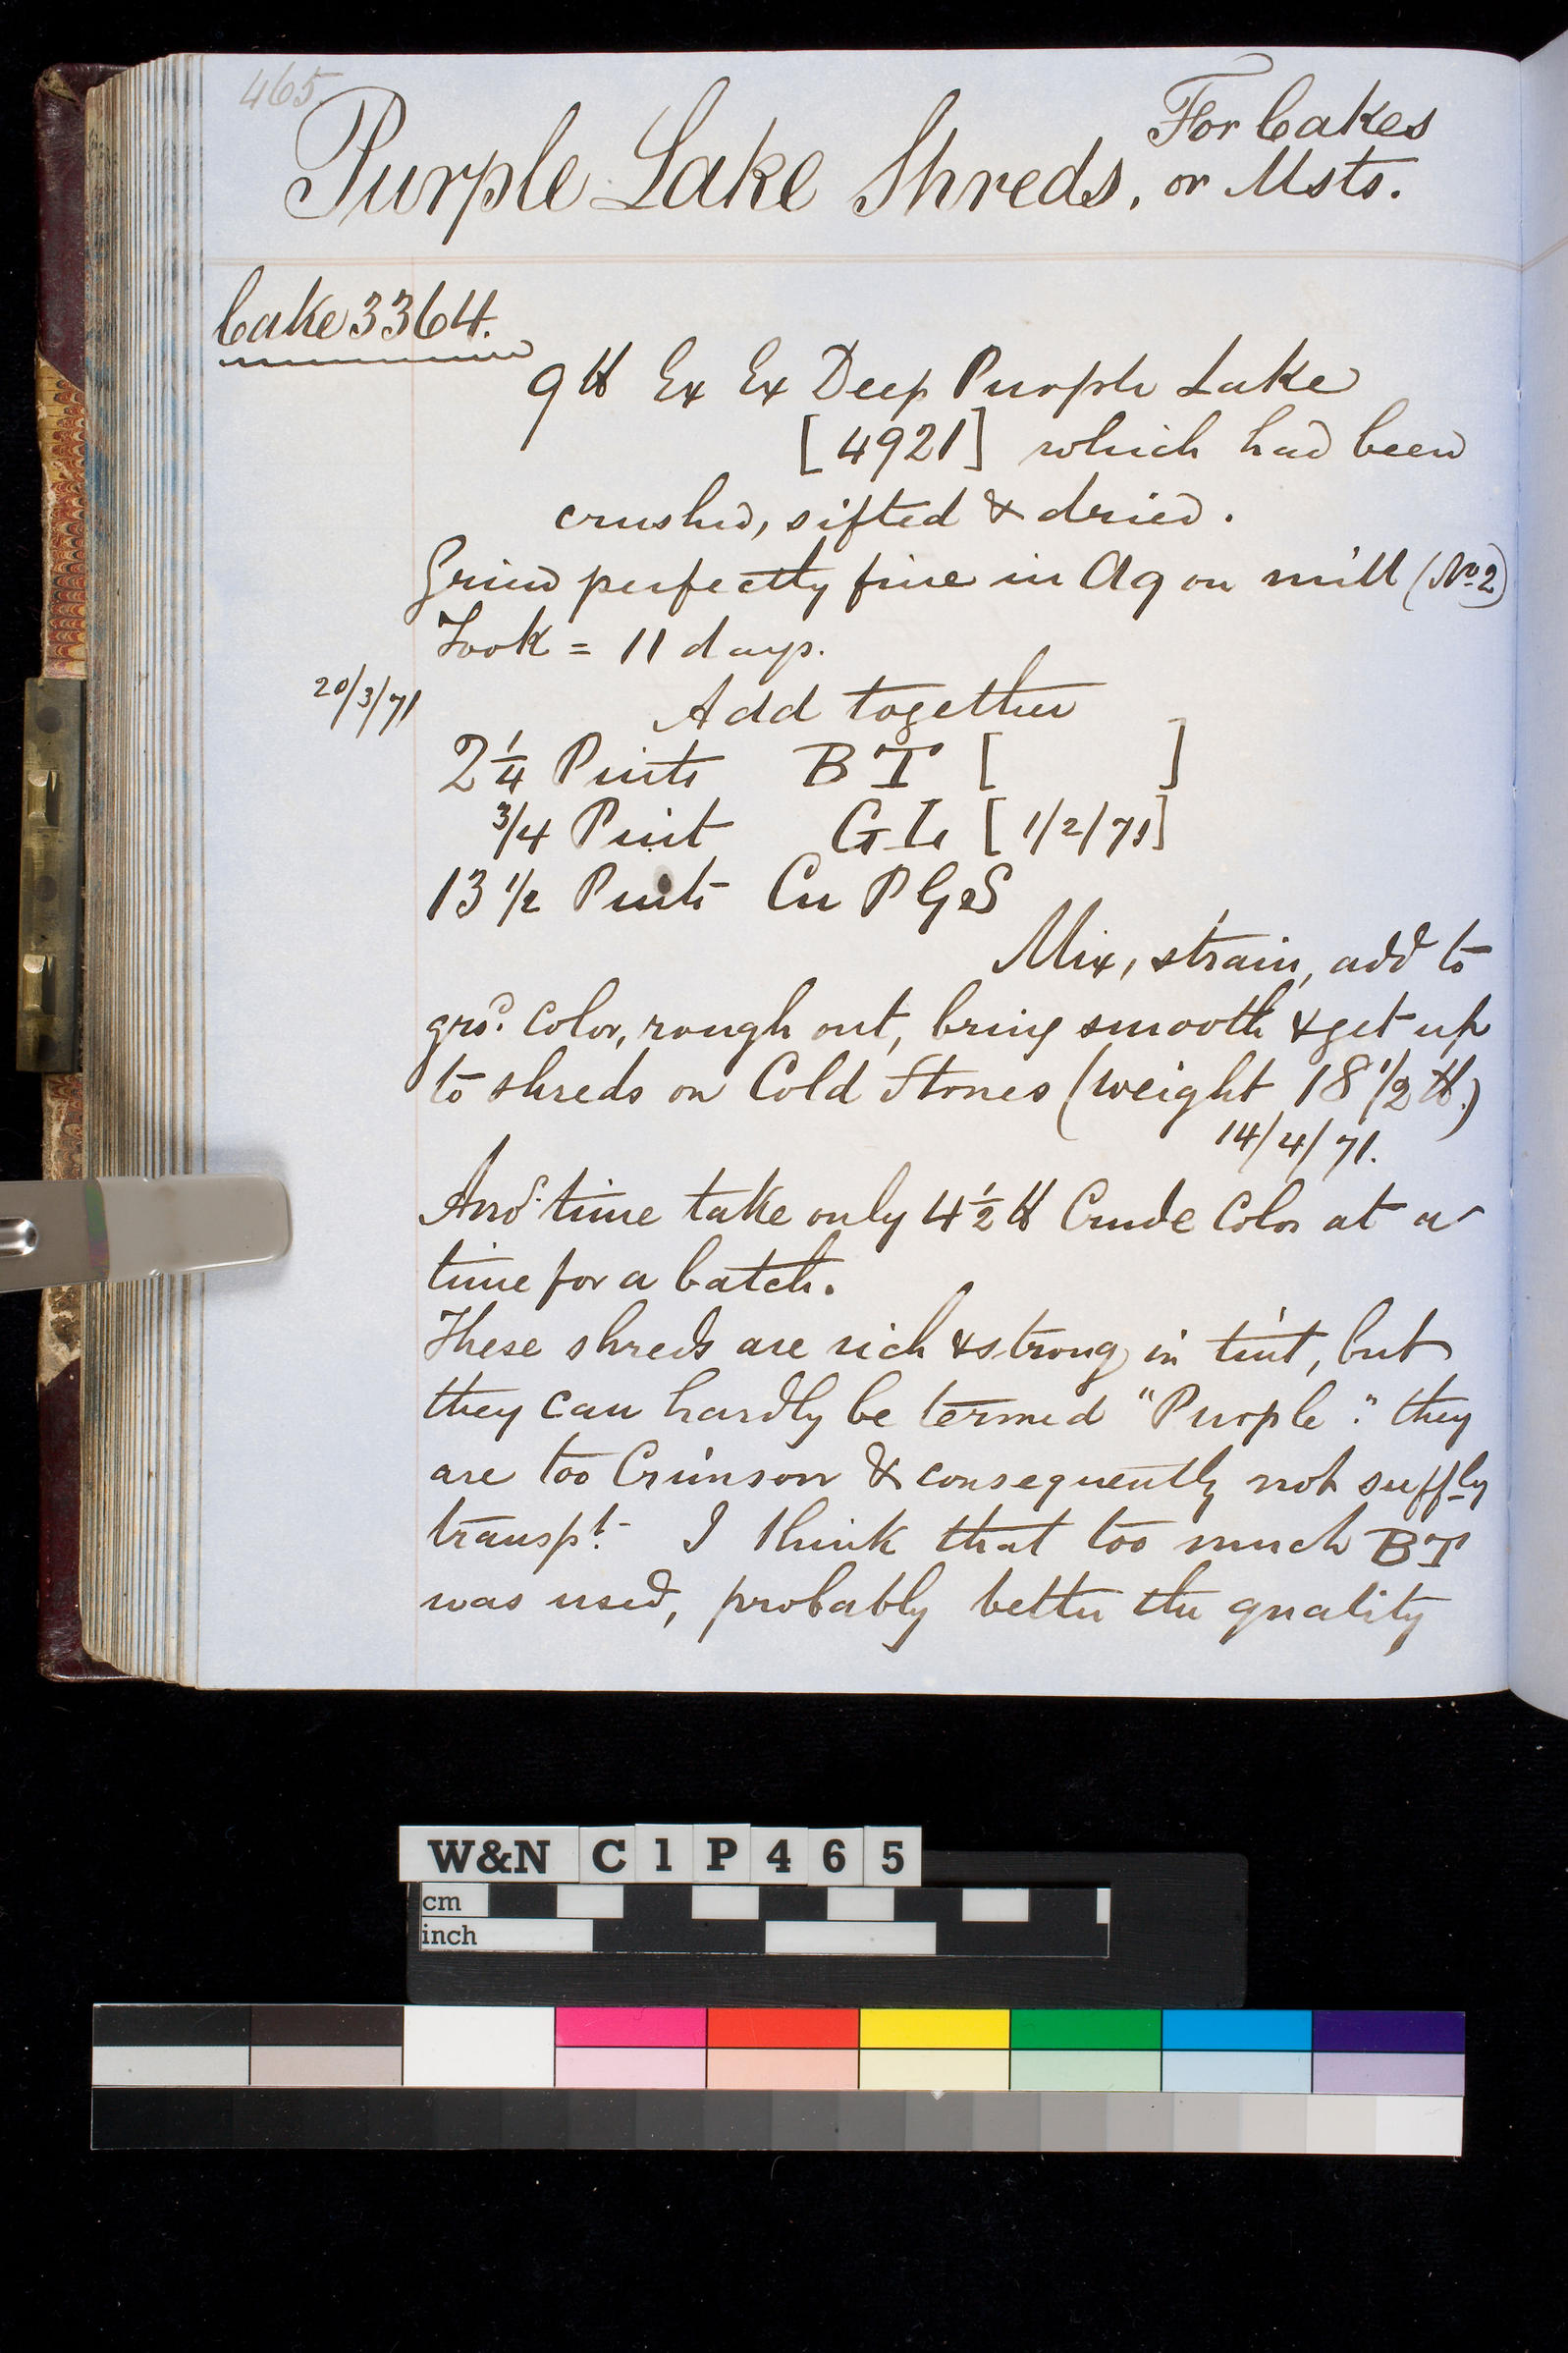 465
For Cakes
Purple Lake Shreds, or Msts.
Cake 3364.
9 lb Ex Ex Deep Purple Lake
[4921] which had been
crushed, sifted & dried.
Grind perfectly fine in Aq on mill (No 2)
Took = 11 days.
20/3/71
Add together
2 1/4 Pints BT [ ]
3/4 Pint GL [1/2/71]
13 1/2 Pints Cu P G S
Mix, strain, add to
grd. Color, rough out, bring smooth & get up
to shreds on Cold Stones (weight 18 1/2 lb.)
14/4/71.
Anor time take only 4 1/2 lb Crude Color at a
time for a batch.
These shreds are rich & strong in tint, but
they can hardly be termed "Purple": they
are too Crimson & consequently not suffly
transpt. I think that too much BT
was used, probably better the quality
W&N C1P465
cm
inch